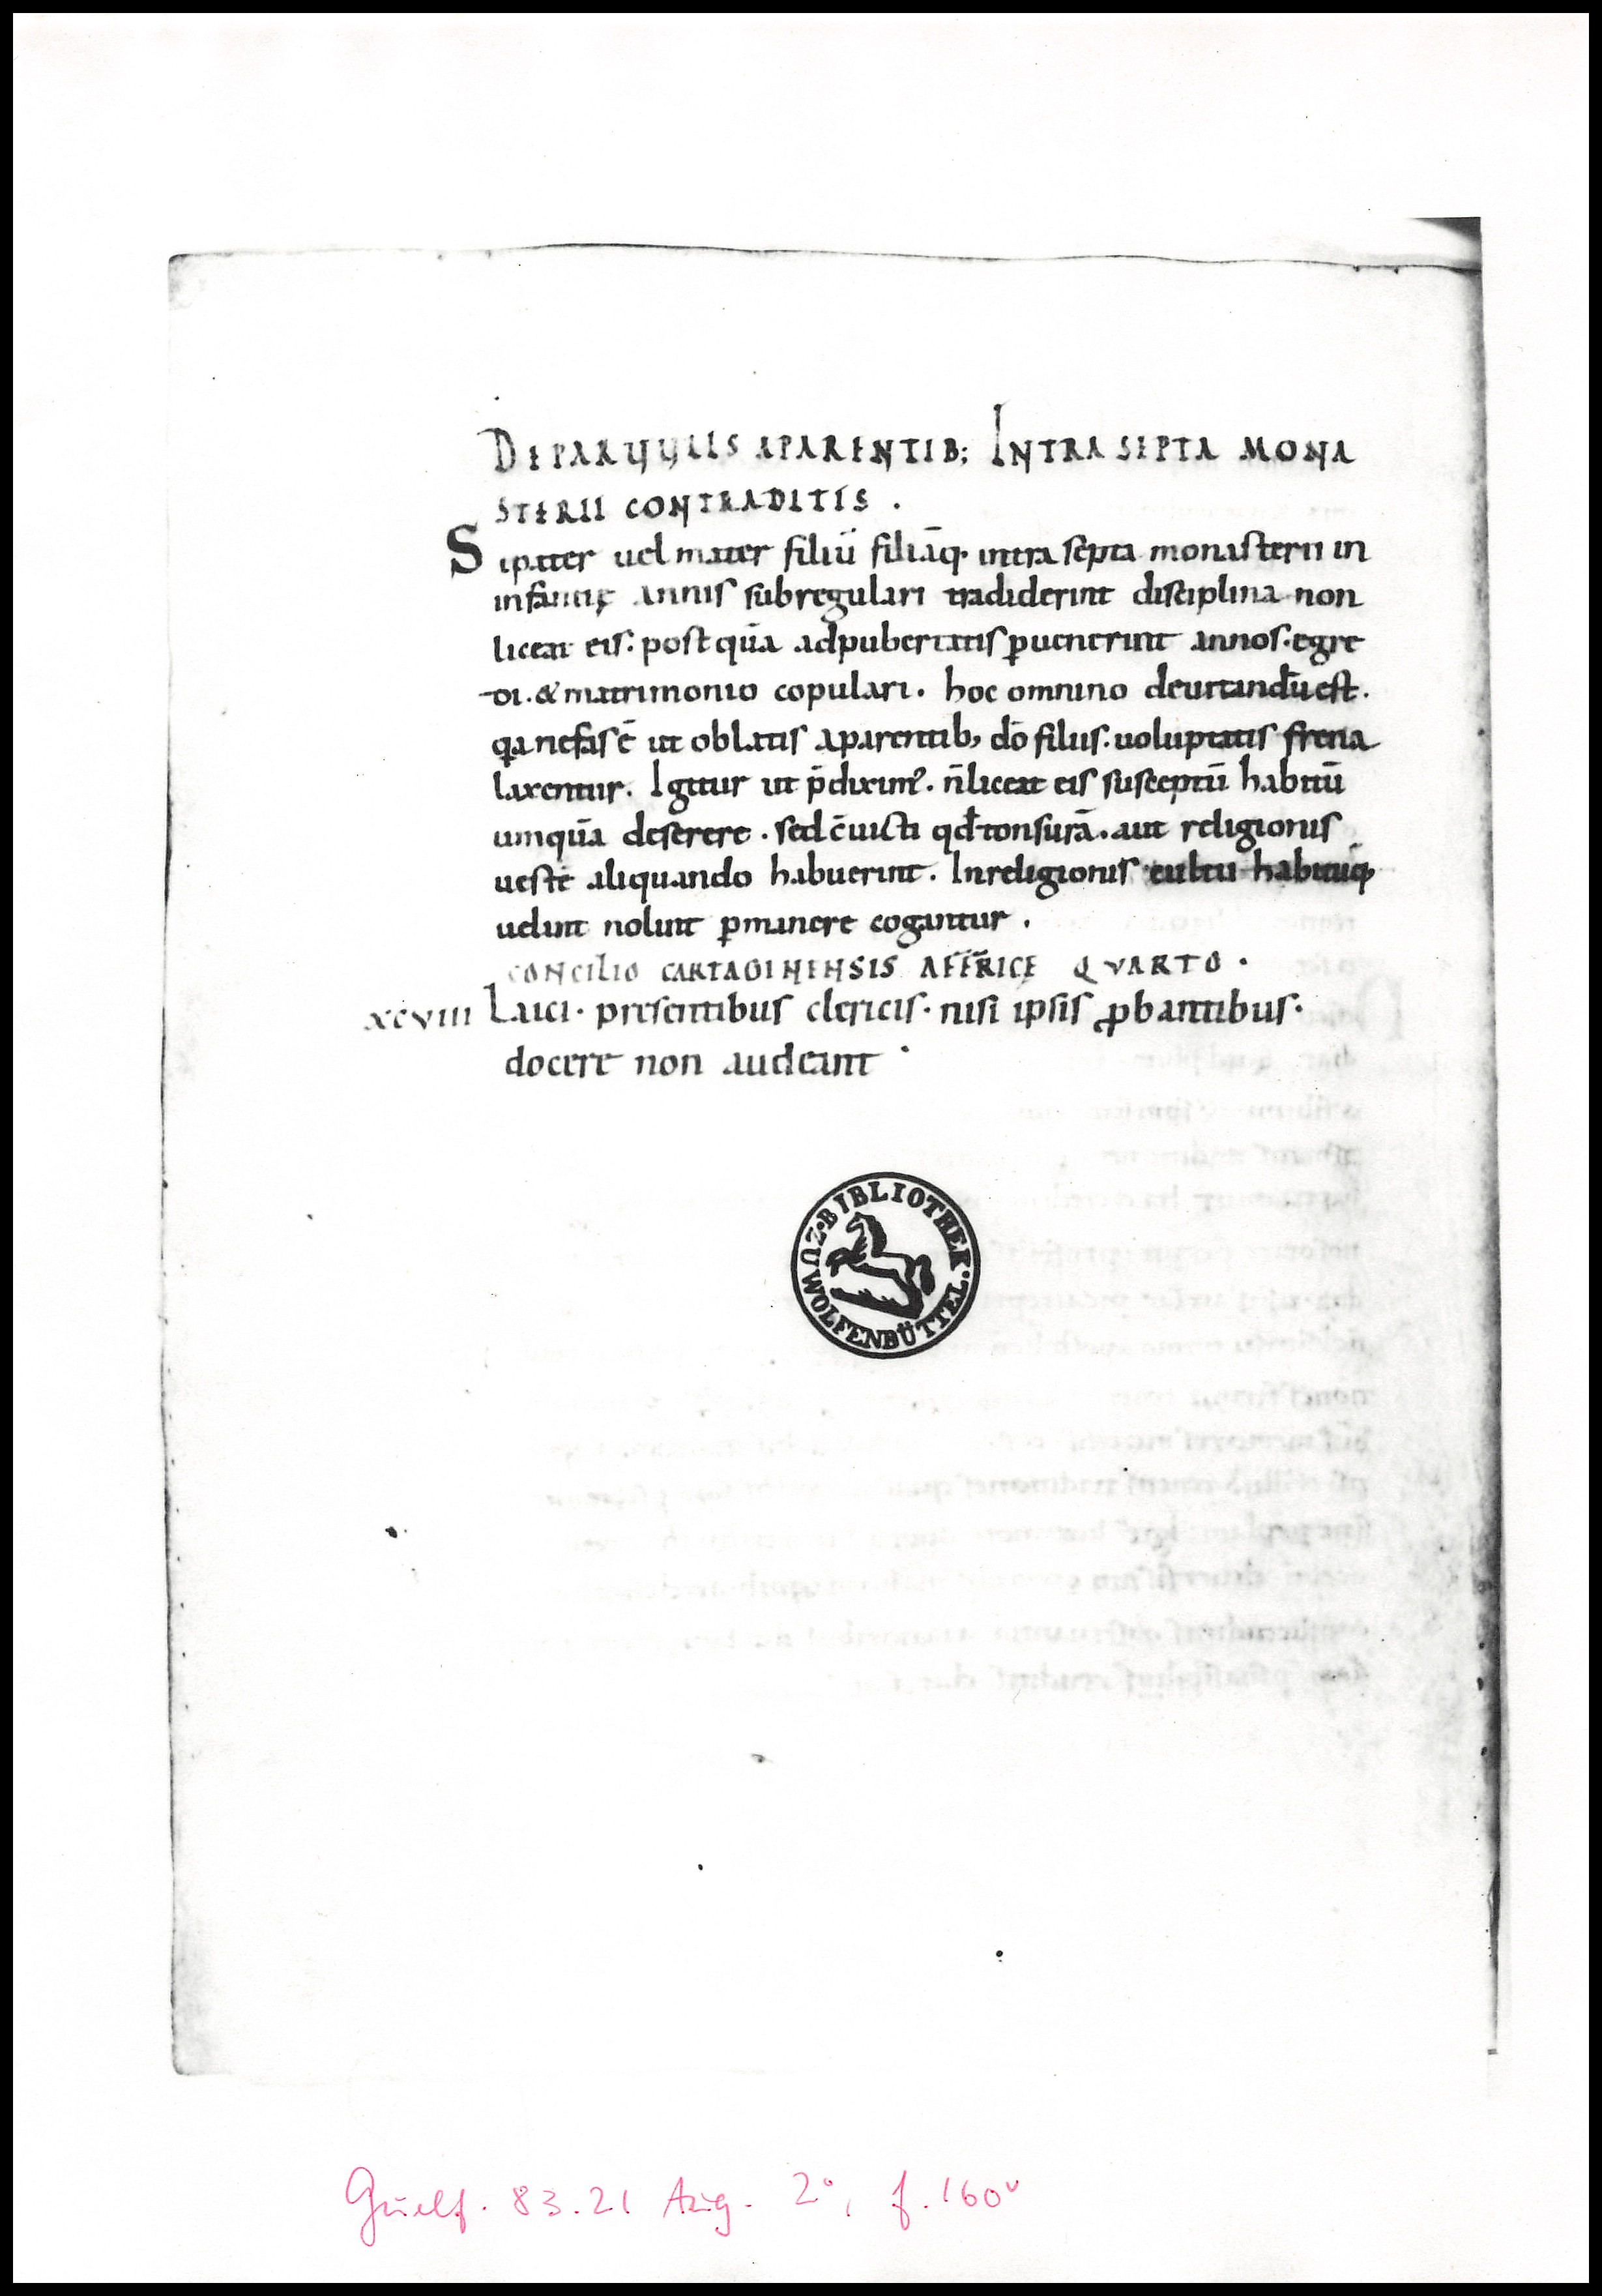 DEPARUULIS APARENTIB; INTRA SEPTA MONA
STERII CONTRADITIS .
S ipater uel mater filiū filiāq; intra septa monasterii in
infantię annis subregulari tradiderint disciplina non
liceat eis. postquā adpubertatis ꝑuenerint annos. egre
di. & matrimonio copulari. hoc omnino deuitandū est.
qa nefas ē ut oblatis aparentib; dō filiis. uoluptatis frena
laxentur. Igitur ut p̄diximꝰ. n̄ liceat eis susceptū habitū
umquā deserere. sed c̄uicti qđ tonsurā. aut religionis
uestē aliquando habuerint. Inreligionis cultu habituq;
uelint nolint ꝑmanere cogantur.
CONCILIO CARTAGINENSIS AFFRICE QVARTO.
xcviii Laici. presentibus clericis. nisi ipsis ꝓbantibus.
docere non audeant
BIBLIOTHEK. ZU WOLFENBÜTTEL.
Guelf. 83.21 Aug. 2°, f. 160v